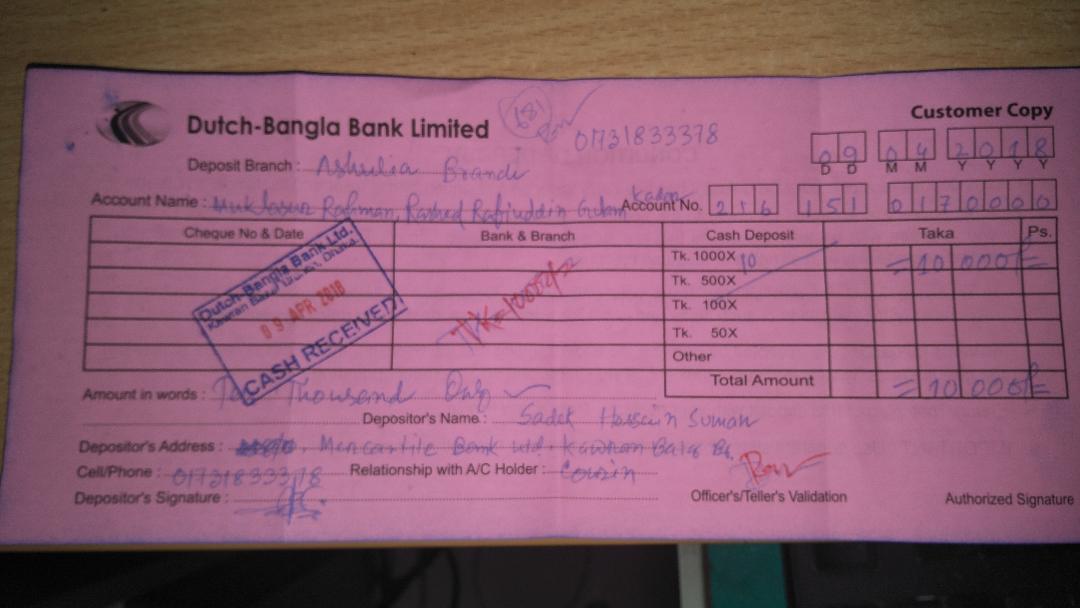 Customer Copy
Dutch-Bangla Bank Limited
181
01731833378
09 04 2018
D D M M Y Y Y Y
Deposit Branch : Ashulia Branch
Account Name : Rahman, Rashed Rafiuddin Account No. 216 151 0170000
Cheque No & Date Bank & Branch Cash Deposit Taka Ps.
Tk. 1000X 10 =10 000/=
Tk. 500X
Tk. 100X
Tk. 50X
Other
Total Amount =10 000/=
Dutch-Bangla Bank Ltd.
Dhaka.
09 APR 2018
CASH RECEIVED
TK=10000/=
Amount in words : Ten Thousand Only
Depositor's Name : Sadek Hossain Suman
Depositor's Address : Mercantile Bank Ltd. Kawran Bazar Br.
Cell/Phone : 01731833378 Relationship with A/C Holder : Cousin
Depositor's Signature :
Officer's/Teller's Validation
Authorized Signature